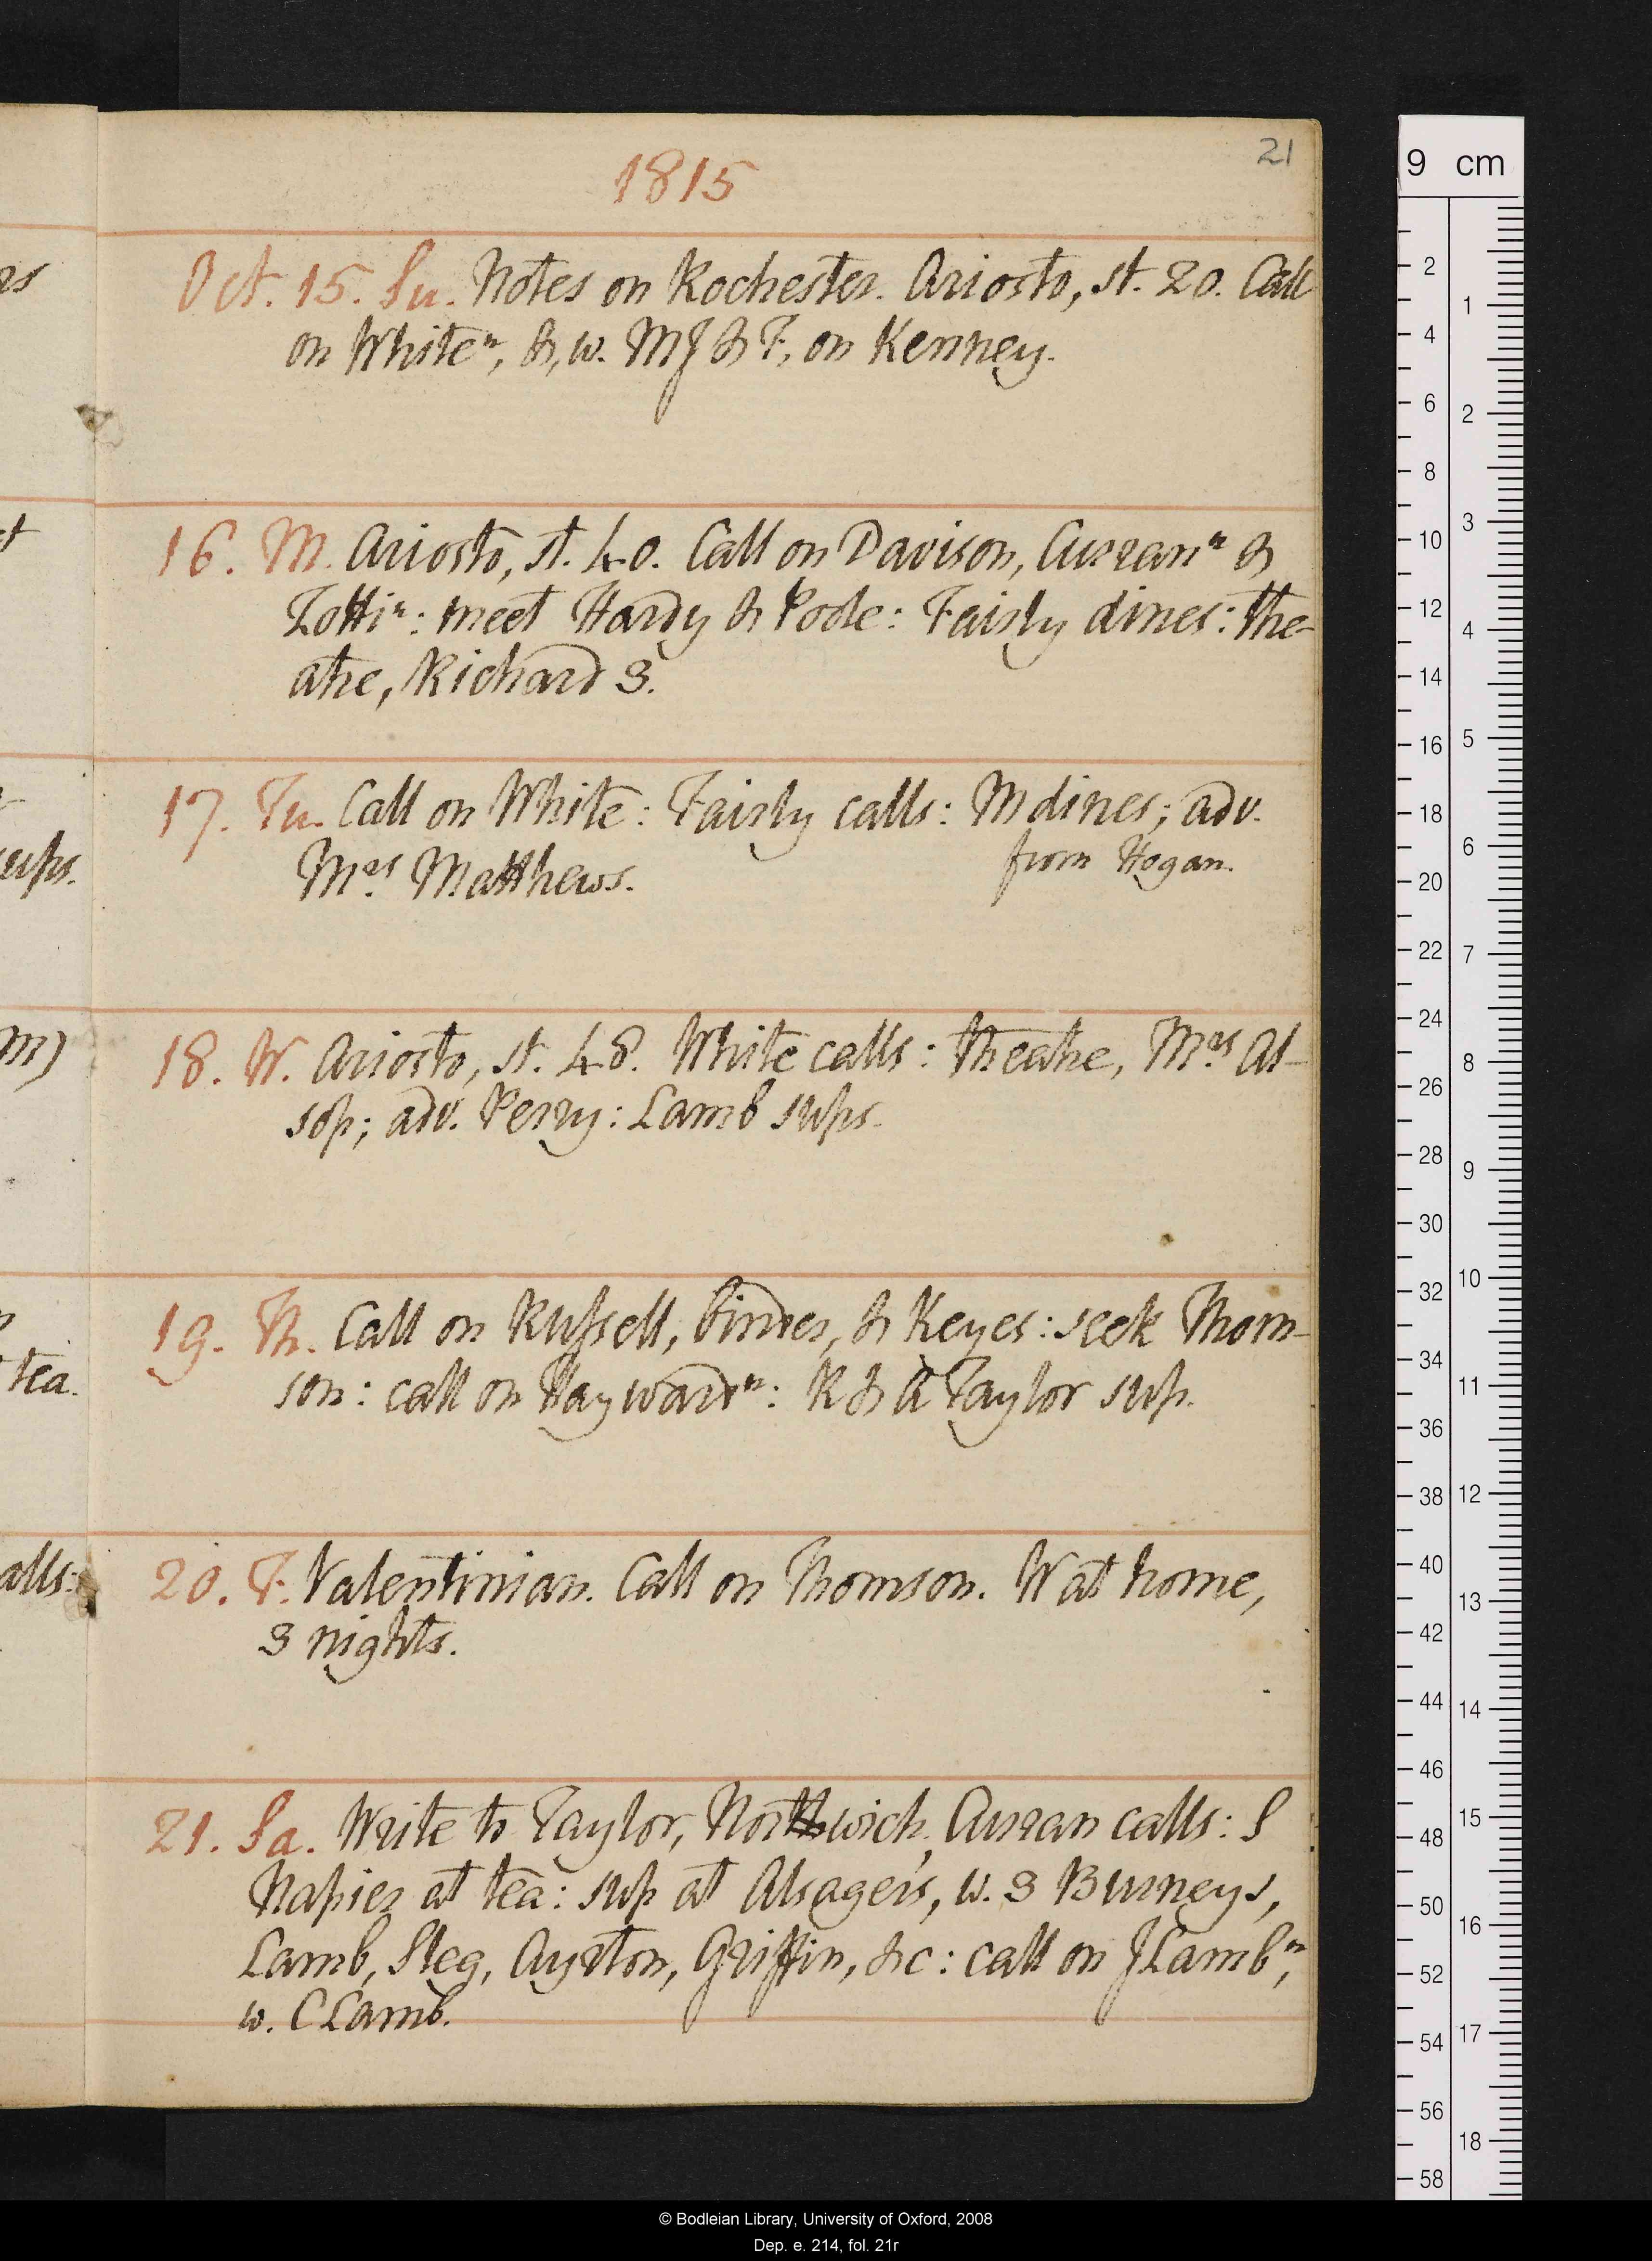 21
1815
Oct. 15. Su. Notes on Rochester. Ariosto, st. 20. Call
on Whiteⁿ, &, w. MJ & F, on Kenney.
16. M. Ariosto, st. 40. Call on Davison, Curranⁿ &
Zottiⁿ: meet Hardy & Poole: Fairly dines: the-
atre, Richard 3.
17. Tu. Call on White: Fairly calls: M dines; adv.
Mrs Matthews.
from Hogan.
18. W. Ariosto, st. 48. White calls: theatre, Mrs Al-
sop; adv. Perry: Lamb sups.
19. Th. Call on Russell, binder, & Keyes: seek Thom-
son: call on Haywardⁿ: R & A Taylor sup.
20. F. Valentinian. Call on Thomson. W at home,
3 nights.
21. Sa. Write to Taylor, Northwich. Curran calls: S
Napier at tea: sup at Alsager's, w. 3 Burneys,
Lamb, Steg, Ayrton, Griffin, &c: call on J Lambⁿ,
w. C Lamb.
rs
ct
sups.
m)
tea.
alls:
9 cm
2
4
6
8
10
12
14
16
18
20
22
24
26
28
30
32
34
36
38
40
42
44
46
48
50
52
54
56
58
1
2
3
4
5
6
7
8
9
10
11
12
13
14
15
16
17
18
© Bodleian Library, University of Oxford, 2008
Dep. e. 214, fol. 21r